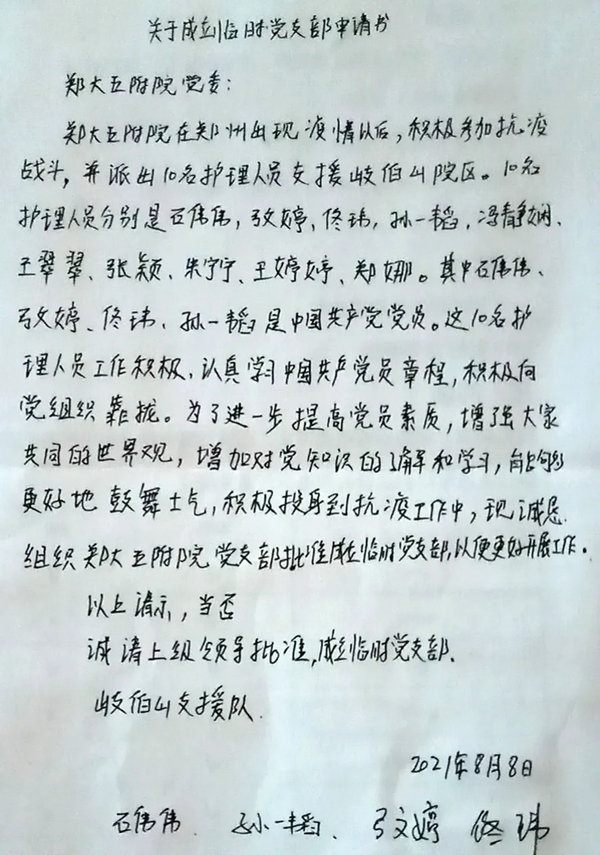 关于成立临时党支部申请书
郑大五附院党委：
郑大五附院在郑州出现疫情以后，积极参加抗疫
战斗，并派出10名护理人员支援岐伯山院区。10名
护理人员分别是石伟伟，弓文婷、佟玮，孙一韬，冯静娴、
王翠翠、张颖、朱宁宁、王婷婷、郑娜。其中石伟伟、
弓文婷、佟玮、孙一韬是中国共产党党员。这10名护
理人员工作积极、认真学习中国共产党员章程，积极向
党组织靠拢。为了进一步提高党员素质，增强大家
共同的世界观，增加对党知识的了解和学习，能够
更好地鼓舞士气，积极投身到抗疫工作中，现诚恳
组织郑大五附院党支部批准成立临时党支部，以便更好开展工作。
以上请示，当否
诚请上级领导批准，成立临时党支部.
岐伯山支援队.
2021年8月8日
石伟伟. 孙一韬. 弓文婷 佟玮